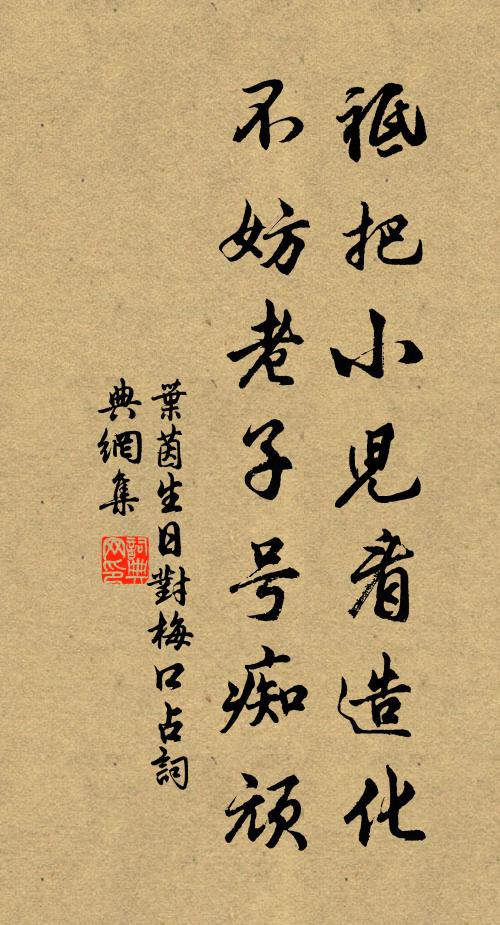 祗把小児看造化
不妨老子号痴顽
葉茵生日對梅口占詞
典網集
詞典网印